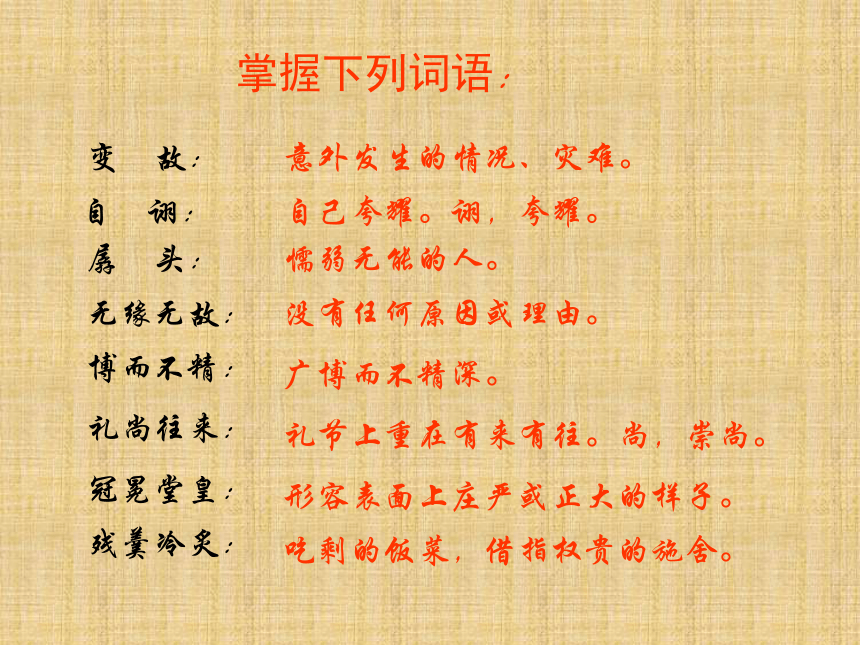 掌握下列词语：
变 故： 意外发生的情况、灾难。
自 诩： 自己夸耀。诩，夸耀。
孱 头： 懦弱无能的人。
无缘无故： 没有任何原因或理由。
博而不精： 广博而不精深。
礼尚往来： 礼节上重在有来有往。尚，崇尚。
冠冕堂皇： 形容表面上庄严或正大的样子。
残羹冷炙： 吃剩的饭菜，借指权贵的施舍。